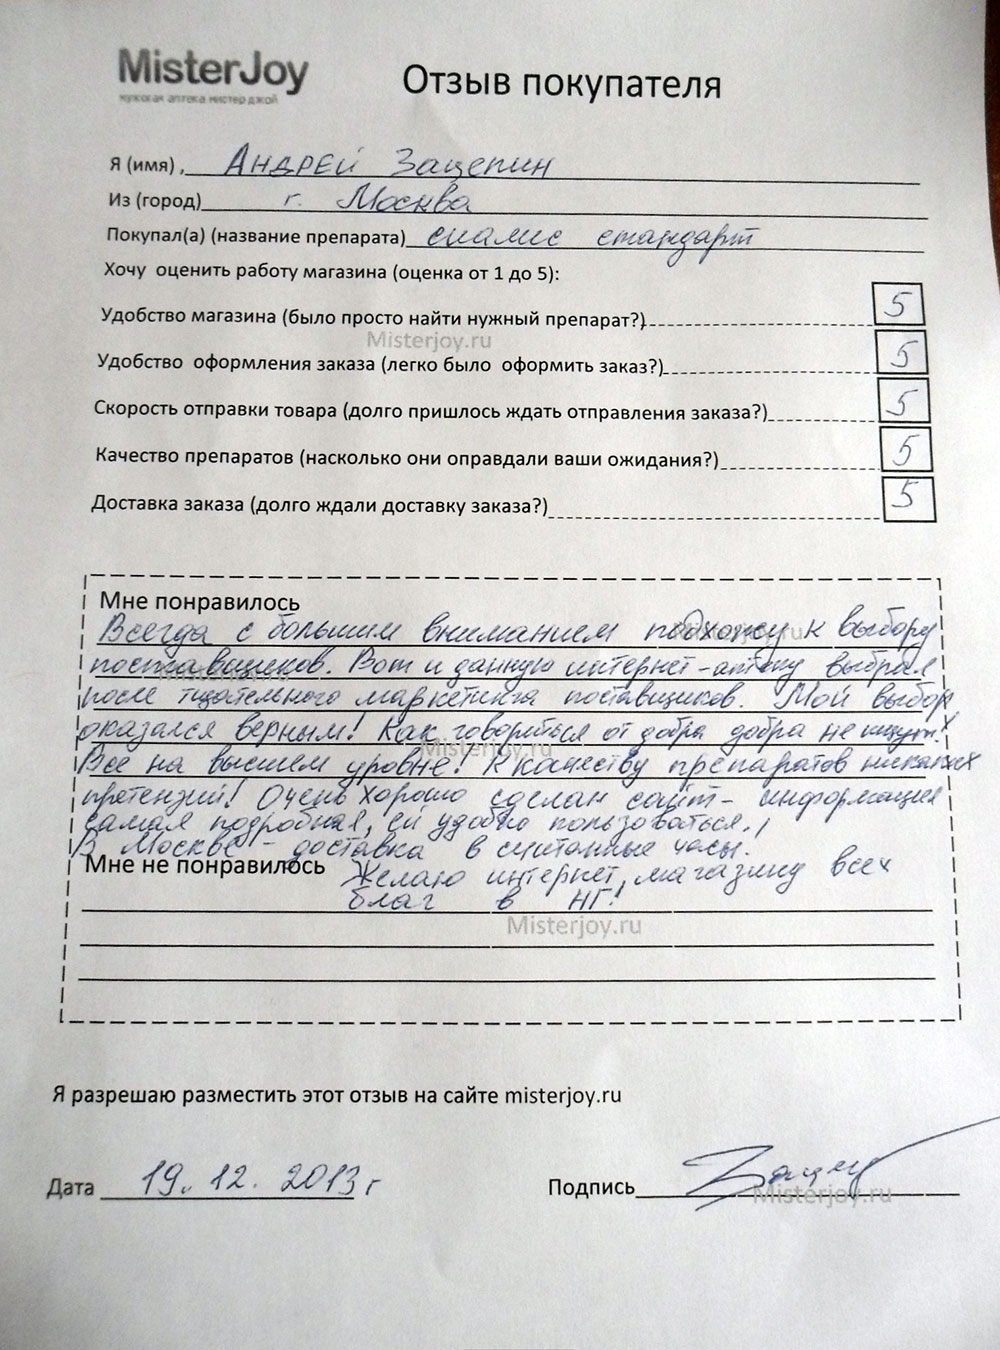 MisterJoy
мужская аптека мистер джой
Отзыв покупателя
Я (имя) , Андрей Зацепин
Из (город) г. Москва
Покупал(а) (название препарата) сиалис стандарт
Хочу оценить работу магазина (оценка от 1 до 5):
Удобство магазина (было просто найти нужный препарат?) 5
Misterjoy.ru
Удобство оформления заказа (легко было оформить заказ?) 5
Скорость отправки товара (долго пришлось ждать отправления заказа?) 5
Качество препаратов (насколько они оправдали ваши ожидания?) 5
Доставка заказа (долго ждали доставку заказа?) 5
Мне понравилось
Всегда с большим вниманием подхожу к выбору
поставщиков. Вот и данную интернет-аптеку выбрал
после тщательного маркетинга поставщиков. Мой выбор
оказался верным! Как говориться от добра добра не ищут!
Misterjoy.ru
Все на высшем уровне! К качеству препаратов никаких
претензий! Очень хорошо сделан сайт - информация
самая подробная, ей удобно пользоваться.
В Москве - доставка в считанные часы.
Мне не понравилось Желаю интернет, магазину всех
благ в НГ!
Misterjoy.ru
Я разрешаю разместить этот отзыв на сайте misterjoy.ru
Дата 19.12.2013г Подпись Зацеп
Misterjoy.ru